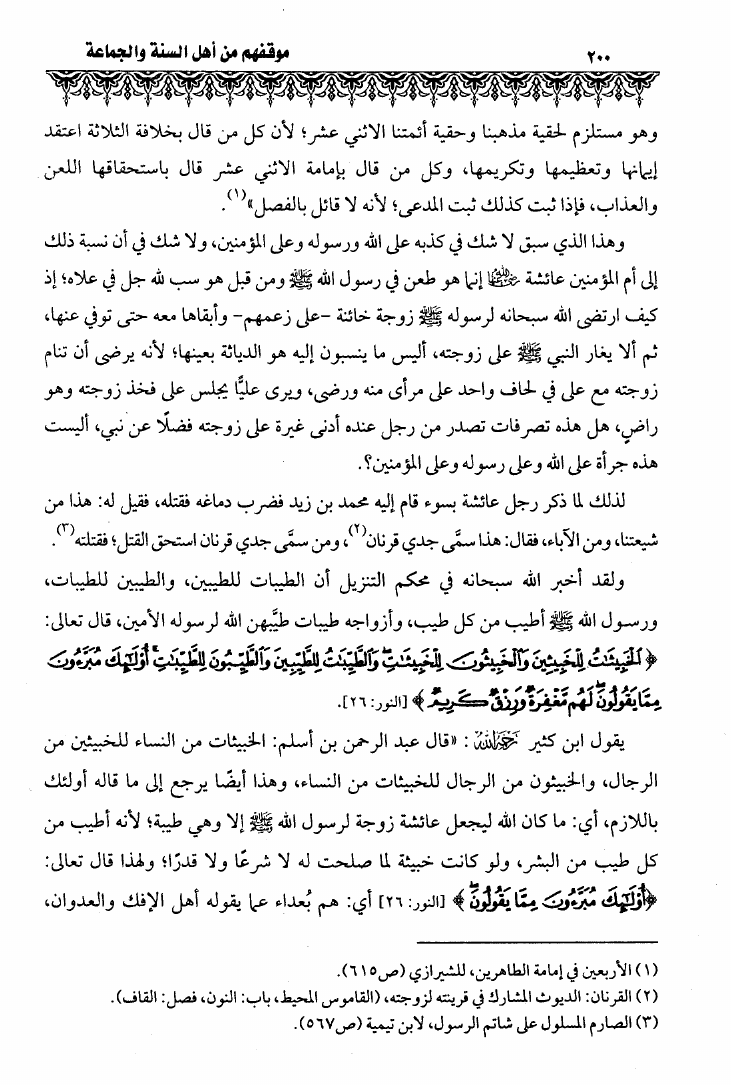 ٢٠٠ موقفهم من أهل السنة والجماعة
وهو مستلزم لحقية مذهبنا وحقية أئمتنا الاثني عشر؛ لأن كل من قال بخلافة الثلاثة اعتقد
إيمانها وتعظيمها وتكريمها، وكل من قال بإمامة الاثني عشر قال باستحقاقها اللعن
والعذاب، فإذا ثبت كذلك ثبت المدعى؛ لأنه لا قائل بالفصل»(١).
وهذا الذي سبق لا شك في كذبه على الله ورسوله وعلى المؤمنين، ولا شك في أن نسبة ذلك
إلى أم المؤمنين عائشة رضي الله عنها إنما هو طعن في رسول الله ﷺ ومن قبل هو سب لله جل في علاه؛ إذ
كيف ارتضى الله سبحانه لرسوله ﷺ زوجة خائنة -على زعمهم- وأبقاها معه حتى توفي عنها،
ثم ألا يغار النبي ﷺ على زوجته، أليس ما ينسبون إليه هو الدياثة بعينها؛ لأنه يرضى أن تنام
زوجته مع على في لحاف واحد على مرأى منه ورضى، ويرى عليًّا يجلس على فخذ زوجته وهو
راضٍ، هل هذه تصرفات تصدر من رجل عنده أدنى غيرة على زوجته فضلًا عن نبي، أليست
هذه جرأة على الله وعلى رسوله وعلى المؤمنين؟.
لذلك لما ذكر رجل عائشة بسوء قام إليه محمد بن زيد فضرب دماغه فقتله، فقيل له: هذا من
شيعتنا، ومن الآباء، فقال: هذا سمَّى جدي قرنان(٢)، ومن سمَّى جدي قرنان استحق القتل؛ فقتلته(٣).
ولقد أخبر الله سبحانه في محكم التنزيل أن الطيبات للطيبين، والطيبين للطيبات،
ورسول الله ﷺ أطيب من كل طيب، وأزواجه طيبات طيَّبهن الله لرسوله الأمين، قال تعالى:
﴿ٱلْخَبِيثَٰتُ لِلْخَبِيثِينَ وَٱلْخَبِيثُونَ لِلْخَبِيثَٰتِ ۖ وَٱلطَّيِّبَٰتُ لِلطَّيِّبِينَ وَٱلطَّيِّبُونَ لِلطَّيِّبَٰتِ ۚ أُو۟لَٰٓئِكَ مُبَرَّءُونَ
مِمَّا يَقُولُونَ ۖ لَهُم مَّغْفِرَةٌ وَرِزْقٌ كَرِيمٌ﴾ [النور:٢٦].
يقول ابن كثير رحمه الله: «قال عبد الرحمن بن أسلم: الخبيثات من النساء للخبيثين من
الرجال، والخبيثون من الرجال للخبيثات من النساء، وهذا أيضًا يرجع إلى ما قاله أولئك
باللازم، أي: ما كان الله ليجعل عائشة زوجة لرسول الله ﷺ إلا وهي طيبة؛ لأنه أطيب من
كل طيب من البشر، ولو كانت خبيثة لما صلحت له لا شرعًا ولا قدرًا؛ ولهذا قال تعالى:
﴿أُو۟لَٰٓئِكَ مُبَرَّءُونَ مِمَّا يَقُولُونَ ۖ﴾ [النور:٢٦] أي: هم بُعداء عما يقوله أهل الإفك والعدوان،
(١) الأربعين في إمامة الطاهرين، للشيرازي (ص٦١٥).
(٢) القرنان: الديوث المشارك في قرينته لزوجته، (القاموس المحيط، باب: النون، فصل: القاف).
(٣) الصارم المسلول على شاتم الرسول، لابن تيمية (ص٥٦٧).